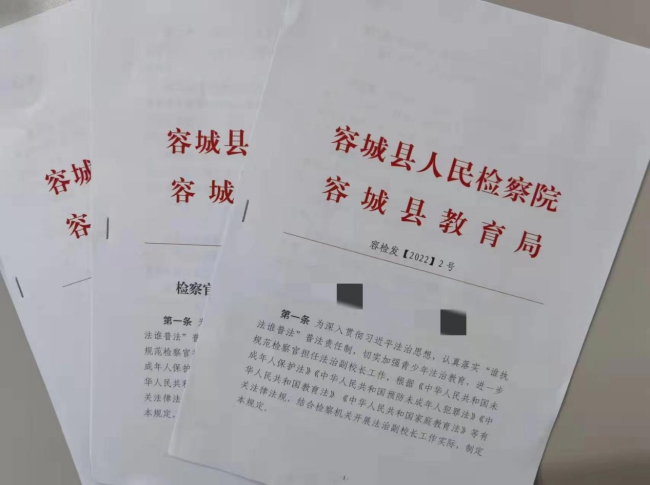 容城
容
容城县
容城
检察官
第一条 为
法谁普法”
规范检察官
成年人保护
华人民共和
关法律法
本规定。
容城县人民检察院
容城县教育局
容检发【2022】2号
第一条 为深入贯彻习近平法治思想，认真落实“谁执
法谁普法”普法责任制，切实加强青少年法治教育，进一步
规范检察官担任法治副校长工作，根据《中华人民共和国未
成年人保护法》《中华人民共和国预防未成年人犯罪法》《中
华人民共和国教育法》《中华人民共和国家庭教育法》等有
关法律法规，结合检察机关开展法治副校长工作实际，制定
本规定。
1